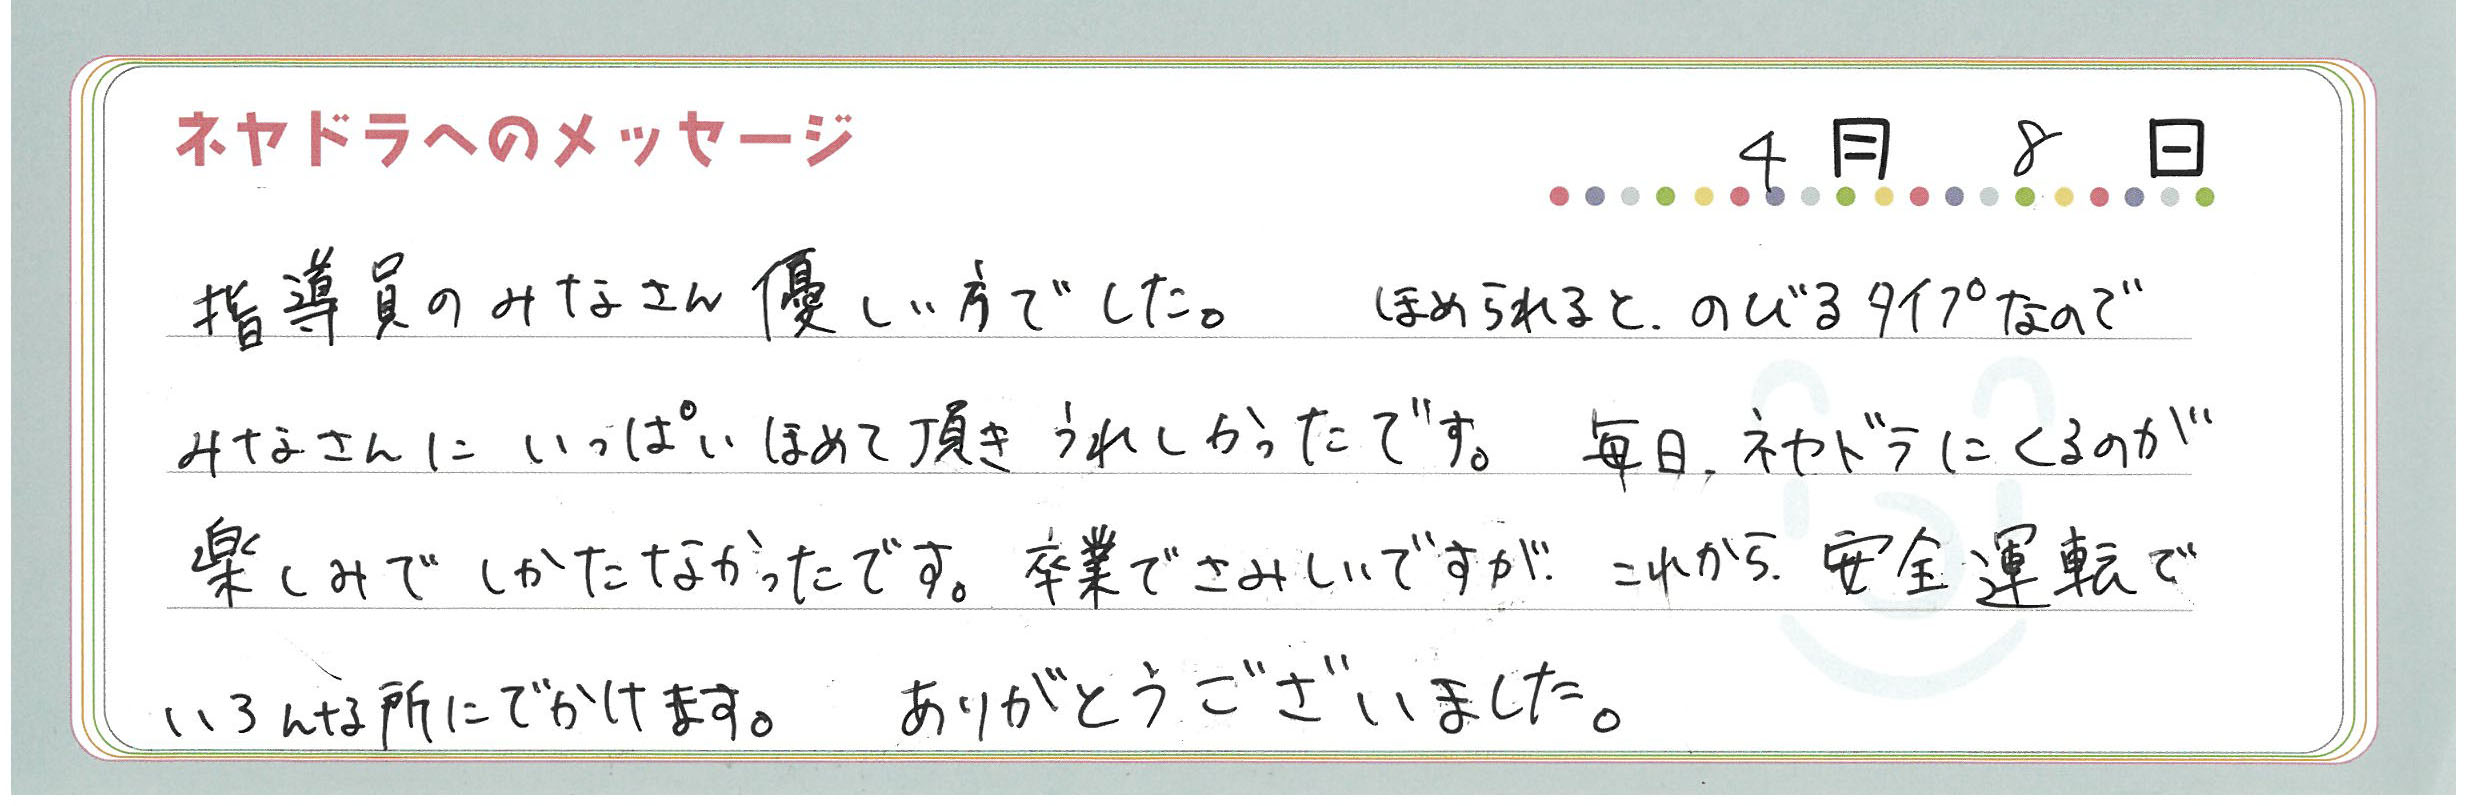 ネヤドラへのメッセージ
4月 8日
指導員のみなさん優しい方でした。 ほめられると、のびるタイプなので
みなさんに いっぱいほめて頂き うれしかったです。 毎日、ネヤドラにくるのが
楽しみで しかたなかったです。卒業でさみしいですが、これから、安全運転で
いろんな所にでかけます。 ありがとうございました。